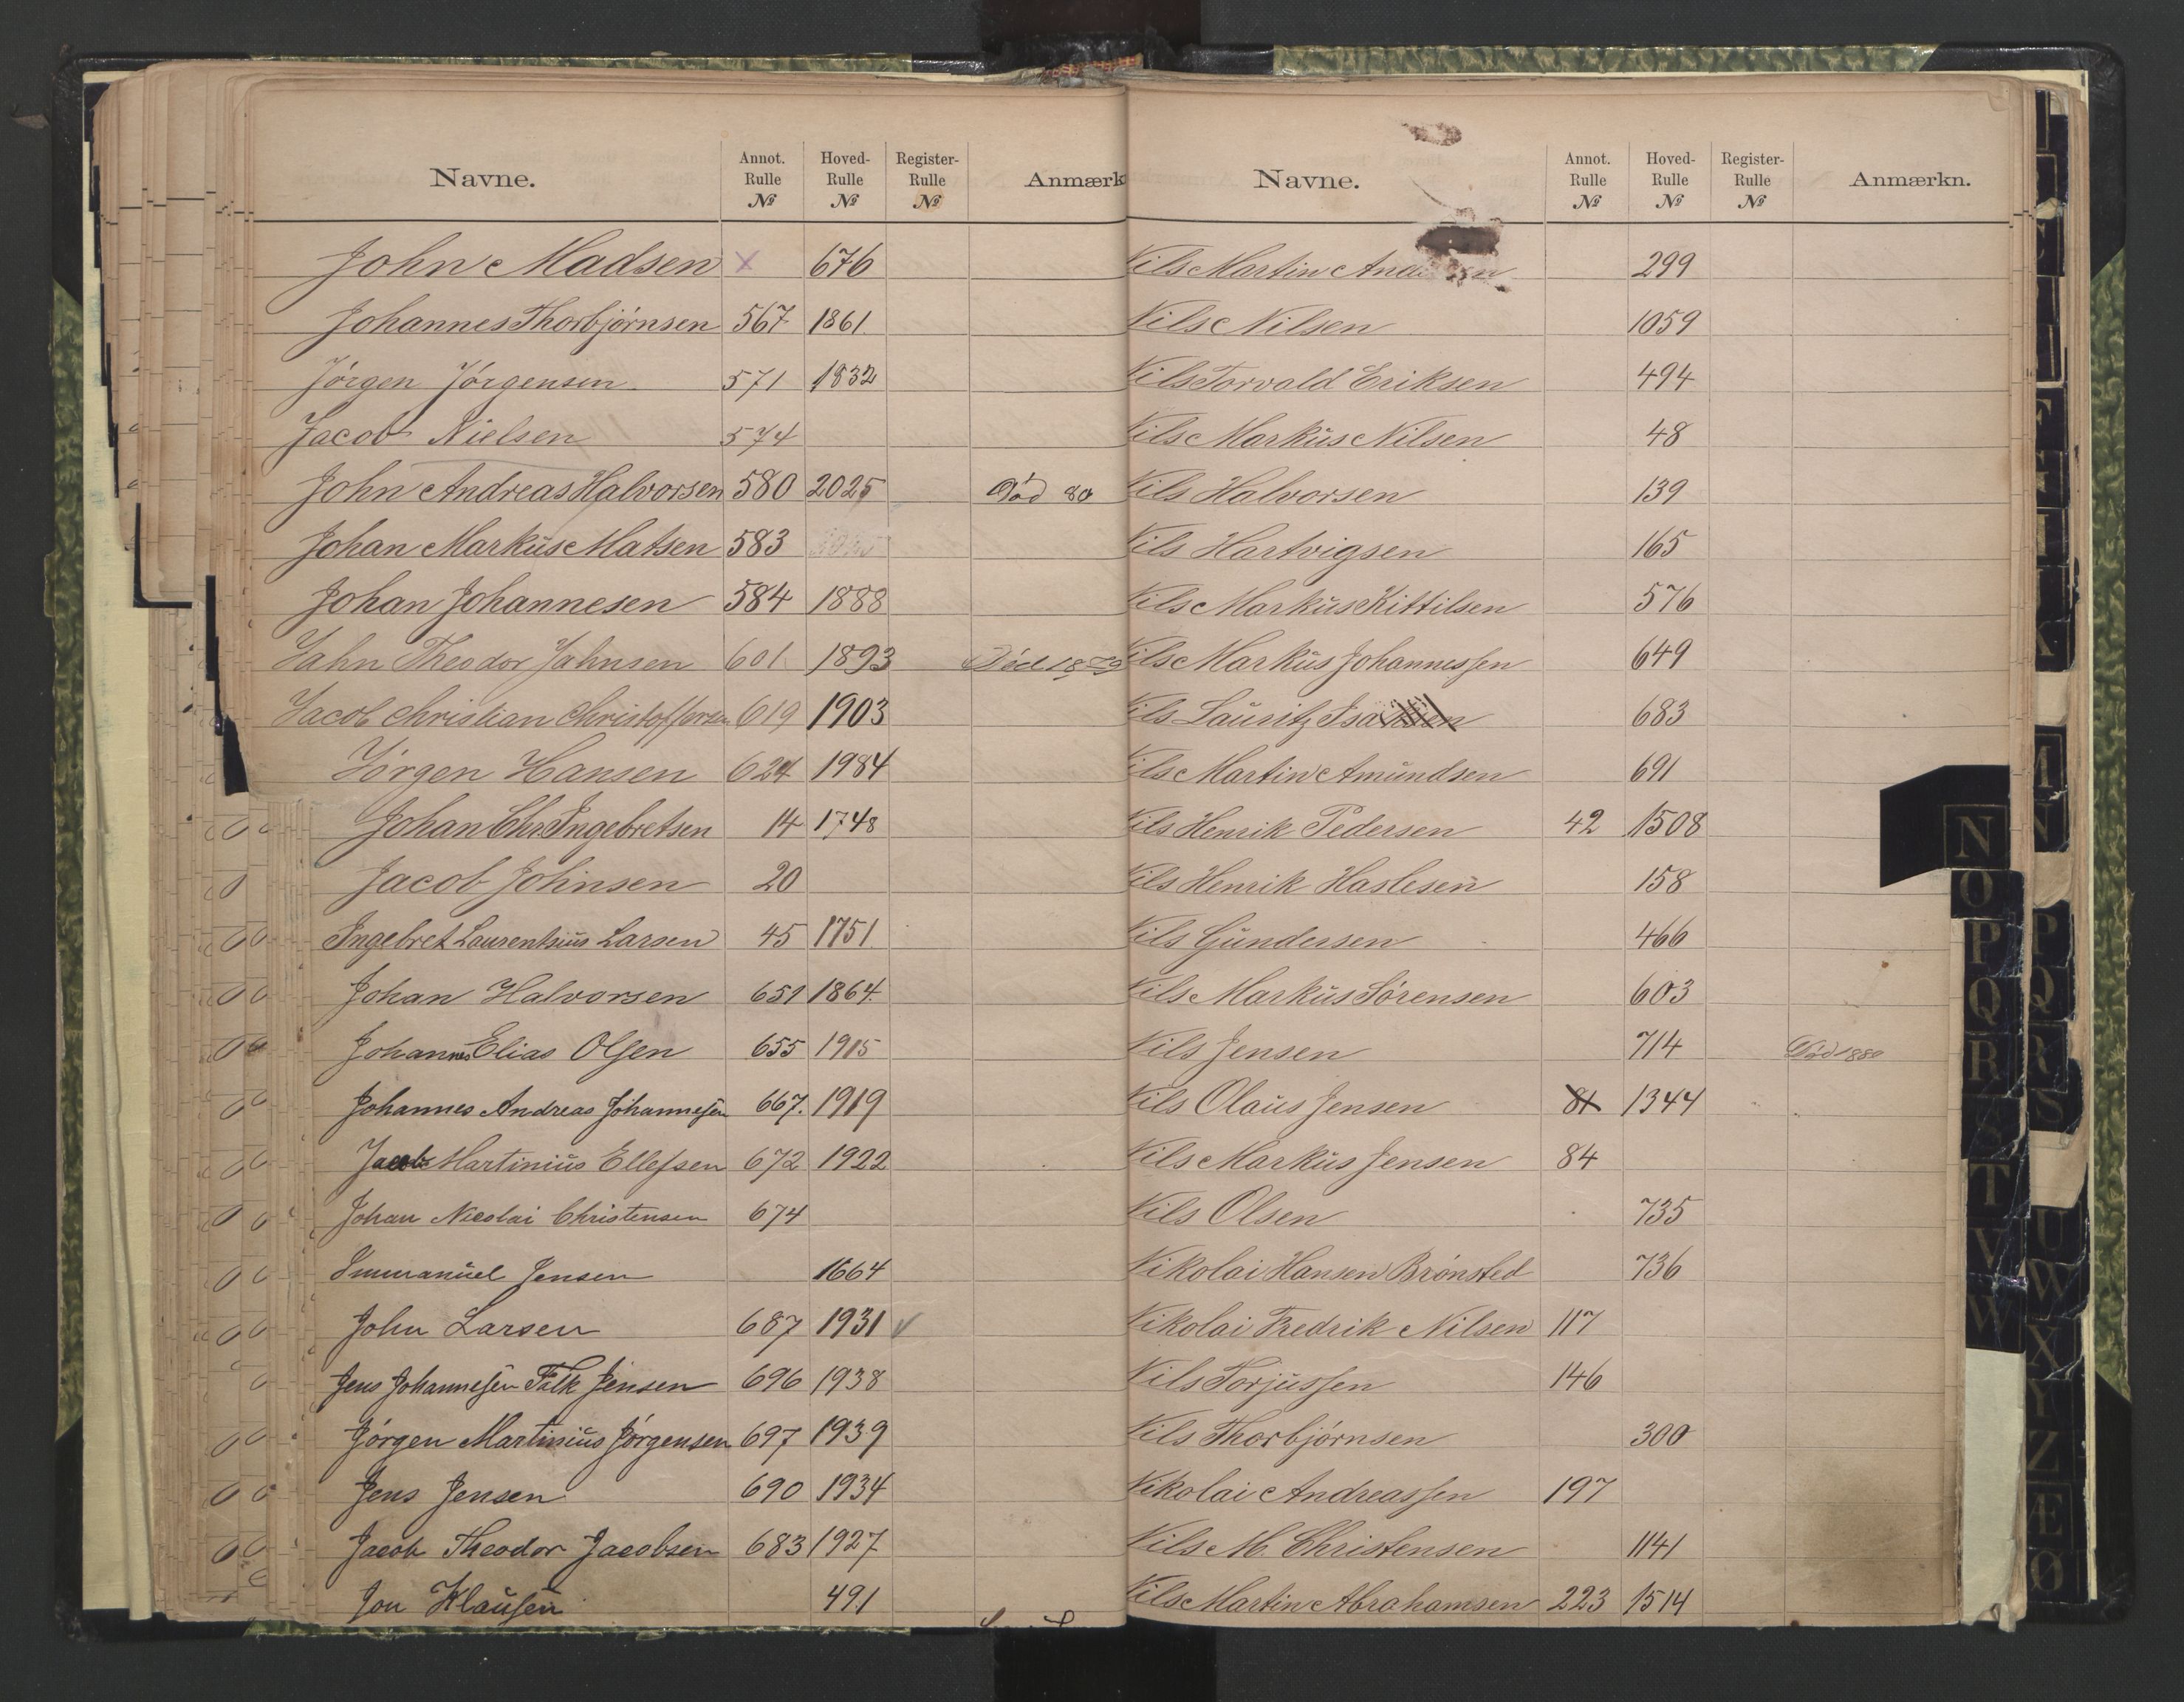 Navne. Annot. Rulle № Hoved-Rulle № Register-Rulle № Anmærk
John Madsen × 676
Johannes Thorbjörnsen 567 1861
Jörgen Jörgensen 571 1832
Jacob Nielsen 574
John Andreas Halvorsen 580 2025 Död 80
Johan Markus Matsen 583
Johan Johannesen 584 1888
Jahn Theodor Jahnsen 601 1893 Död 1879
Jacob Christian Christoffersen 619 1903
Jörgen Hansen 624 1984
Johan Chr. Ingebretsen 14 1748
Jacob Johnsen 20
Ingebret Laurentsius Larsen 45 1751
Johan Halvorsen 651 1864
Johannes Elias Olsen 655 1915
Johannes Andreas Johannesen 667. 1919
Jacob Martinius Ellefsen 672 1922
Johan Nicolai Christensen 674
Immanuel Jensen 1664
John Larsen 687 1931 √
Jens Johannesen Falk Jensen 696 1938
Jörgen Martinius Jörgensen 697 1939
Jens Jensen 690 1934
Jacob Theodor Jacobsen 683 1927
Jon Klausen 491
Navne. Annot. Rulle № Hoved-Rulle № Register-Rulle № Anmærkn.
Nils Martin 299
Nils Nilsen 1059
Nils Torvald Eriksen 494
Nils Markus Nilsen 48
Nils Halvorsen 139
Nils Hartvigsen 165
Nils Markus Kittilsen 576
Nils Markus Johannessen 649
Nils Lauritz Isaksen 683
Nils Martin Amundsen 691
Nils Henrik Pedersen 42 1508
Nils Henrik Haslesen 158
Nils Gundersen 466
Nils Markus Sörensen 603
Nils Jensen 714 Död 1880
Nils Olaus Jensen 81 1344
Nils Markus Jensen 84
Nils Olsen 735
Nikolai Hansen Brönsted 736
Nikolai Fredrik Nilsen 117
Nils Torjussen 146
Nils Thorbjörnsen 300
Nikolai Andreassen 197
Nils M. Christensen 1141
Nils Martin Abrahamsen 223 1514
N
O
P
Q
R
S
T
V
W
P
Q
R
S
U
W
X
Y
Z
Æ
Ø